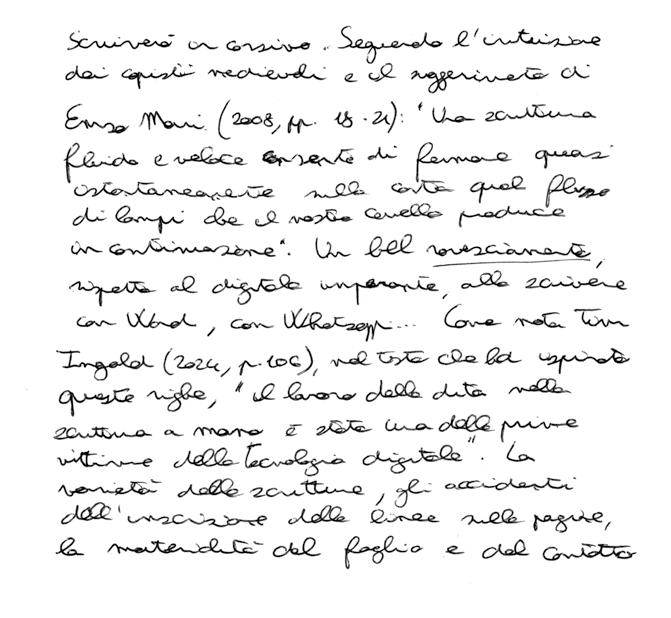 Scriverò in corsivo. Seguendo l'intuizione
dei copisti medievali e il suggerimento di
Enzo Mari (2008, pp. 18-21): "Una scrittura
fluida e veloce consente di fermare quasi
istantaneamente sulla carta quel flusso
di lampi che il nostro cervello produce
in continuazione". Un bel rovesciamento,
rispetto al digitale imperante, allo scrivere
con Word, con Whatsapp... Come nota Tim
Ingold (2024, p. 106), nel testo che ha ispirato
queste righe, "il lavoro delle dita nella
scrittura a mano è stato una delle prime
vittime della tecnologia digitale". La
varietà delle scritture, gli accidenti
dell'inscrizione delle linee sulle pagine,
la materialità del foglio e del contatto